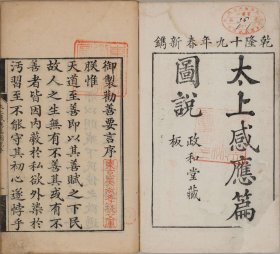 乾隆十九年春新鐫
太上感應篇
圖說
政和堂藏
板
御製勸善要言序
朕惟
天道至善即以其善賦之下民
故人之生無有不善其或有不
善者皆因內蔽於私欲外染於
污習至不能守其初心遂悖乎